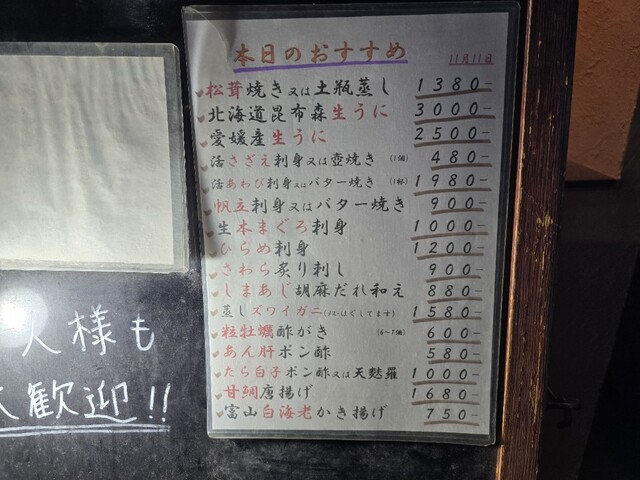 本日のおすすめ
11月11日
松茸焼き又は土瓶蒸し 1380-
北海道昆布森生うに 3000-
愛媛産生うに 2500-
活さざえ刺身又は壺焼き (1個) 480-
活あわび刺身又はバター焼き (1杯) 1980-
帆立刺身又はバター焼き 900-
生本まぐろ刺身 1000-
ひらめ刺身 1200-
さわら炙り刺し 900-
しまあじ胡麻だれ和え 880-
蒸しズワイガニ(メス・ほぐしてます) 1580-
粒牡蠣酢がき (6~7個) 600-
あん肝ポン酢 580-
たら白子ポン酢又は天麩羅 1000-
甘鯛唐揚げ 1680-
富山白海老かき揚げ 750-
人様も
歓迎!!